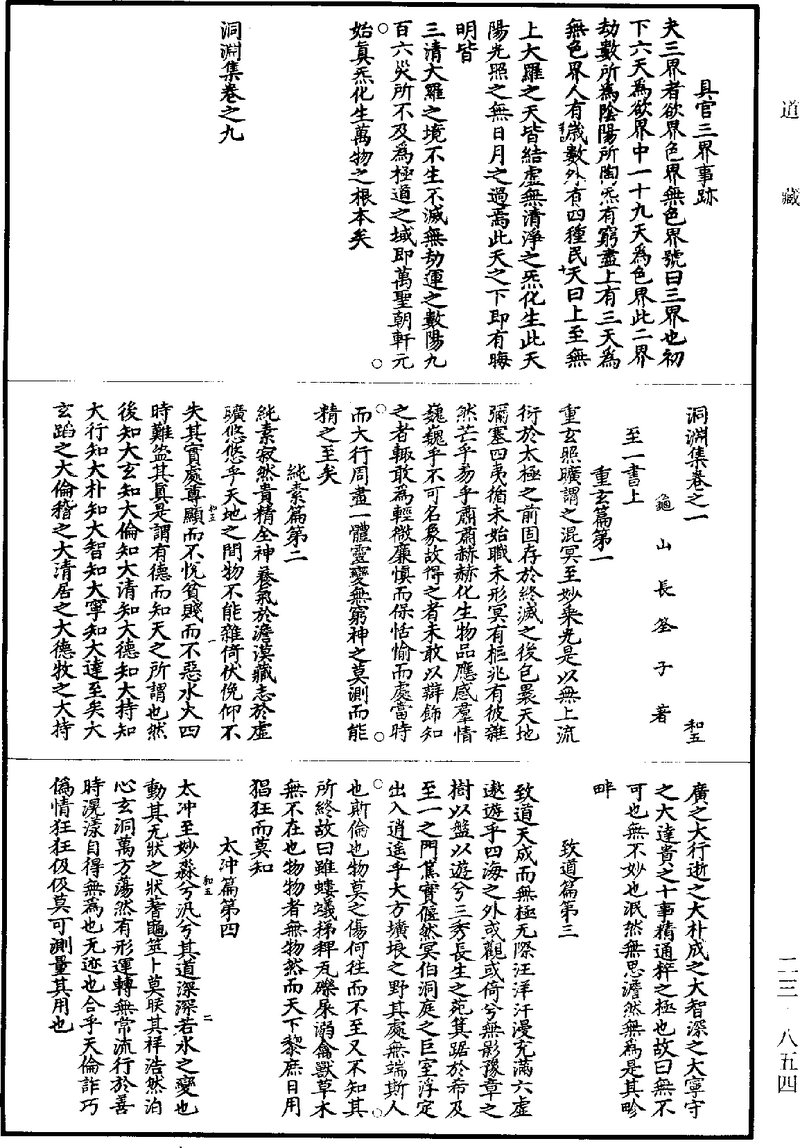 道藏
具官三界事跡
夫三界者欲界色界無色界號曰三界也初
下六天為欲界中一十九天為色界此二界
劫數所為陰陽所陶炁有窮盡上有三天為
無色界人有歲數外有四種民天曰上至無
上大羅之天皆結虛無清淨之炁化生此天
陽光照之無日月之過焉此天之下即有晦
明皆
三清大羅之境不生不滅無劫運之數陽九
百六災所不及為極道之域即萬聖朝軒元
始真炁化生萬物之根本矣
洞淵集卷之九
洞淵集卷之一
和五
龜山長筌子著
至一書上
重玄篇第一
重玄照曠謂之混冥至妙乘光是以無上流
衍於太極之前固存於終滅之後包褁天地
彌塞四夷猶未始職未形冥有樞兆有彼雜
然芒乎芴乎肅肅赫赫化生物品應感羣情
巍巍乎不可名象故得之者未敢以辯飾知
之者輒敢為輕微廉慎而保恬愉而處當時
而大行周盡一體靈變無窮神之莫測而能
精之至矣
純素篇第二
純素寂然貴精全神養氣於澹漠藏志於虛
曠悠悠乎天地之間物不能雜倚伏俛仰不
失其實處尊顯而不悅貧賤而不惡水火四
時難盜其真是謂有德而知天之所謂也然
後知大玄知大倫知大清知大德知大持知
大行知大朴知大智知大寧知大達至矣大
玄蹈之大倫稽之大清居之大德牧之大持
廣之大行逝之大朴成之大智深之大寧守
之大達貴之十事精通粹之極也故曰無不
可也無不妙也泯然無思澹然無為是其畛
畔
致道篇第三
致道天成而無極无際汪洋汗漫充滿六虛
遨遊乎四海之外或觀或倚兮無影豫章之
樹以盤以遊兮三秀長生之苑箕踞於希及
至一之門篤實偃然冥伯洞庭之巨室浮定
出入逍遙乎大方壙埌之野其處無端斯人
也斯倫也物莫之傷何往而不至又不知其
所終故曰雖螻蟻稊稗瓦礫屎溺禽獸草木
無不在也物物者無物然而天下黎庶日用
猖狂而莫知
太冲篇第四
太冲至妙淼兮汎兮其道深深若水之變也
動其无狀之狀蓍龜筮卜莫眹其祥浩然泊
心玄洞萬方蕩然有形運轉無常流行於善
時滉漾自得無為也无迹也合乎天倫詐巧
偽情狂狂伋伋莫可測量其用也
二三·八五四